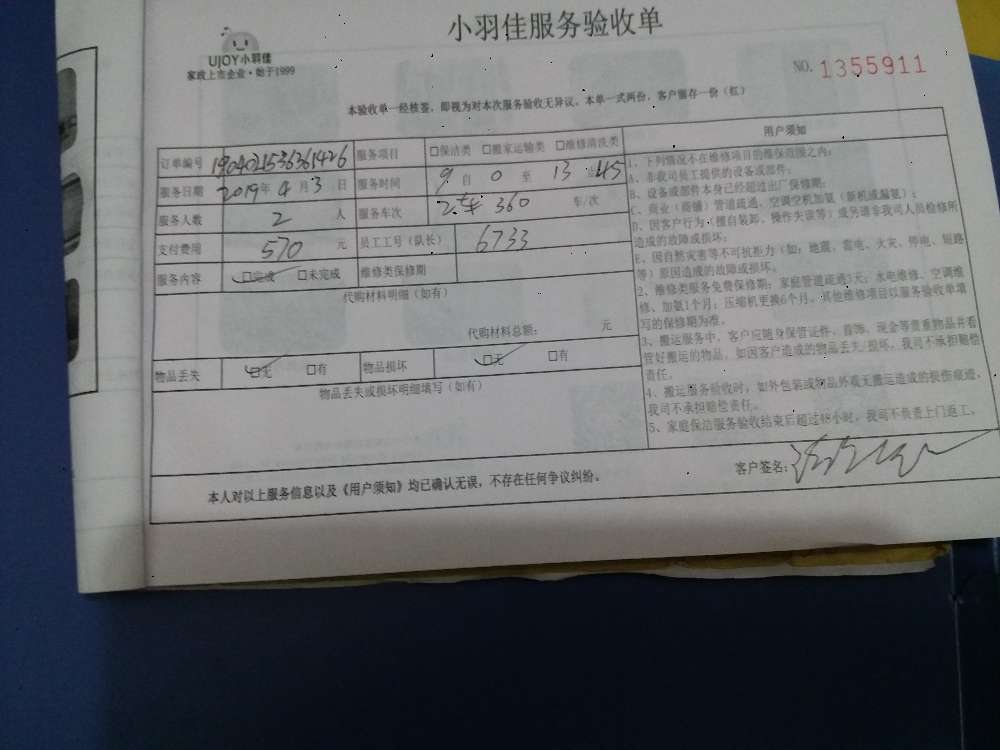 小羽佳服务验收单
UJOY小羽佳
家政上市企业·始于1999
NO. 1355911
本验收单一经核签，即视为对本次服务验收无异议。本单一式两份，客户留存一份（红）
订单编号 1904021536361426 服务项目 □保洁类 □搬家运输类 □维修清洗类
服务日期 2019年 4 月 3 日 服务时间 9 自 0 至 13 45
服务人数 2 人 服务车次 360 车/次
支付费用 570 元 员工工号（队长） 6733
服务内容 □完成 □未完成 维修类保修期
代购材料明细（如有）
代购材料总额： 元
物品丢失 □无 □有 物品损坏 □无 □有
物品丢失或损坏明细填写（如有）
用户须知
1、下列情况不在维修项目的维保范围之内：
A、非我司员工提供的设备或部件；
B、设备或部件本身已经超过出厂保修期；
C、商业（商铺）管道疏通、空调空机加氨（新机或漏氨）；
D、因客户行为（擅自装卸、操作失误等）或另请非我司人员检修所
造成的故障或损坏；
E、因自然灾害等不可抗拒力（如：地震、雷电、火灾、停电、短路
等）原因造成的故障或损坏。
2、维修类服务免费保修期：家庭管道疏通3天；水电维修、空调维
修、加氨1个月；压缩机更换6个月。其他维修项目以服务验收单填
写的保修期为准。
3、搬运服务中，客户应随身保管证件、首饰、现金等贵重物品并看
管好搬运的物品，如因客户造成的物品丢失/损坏，我司不承担赔偿
责任。
4、搬运服务验收时，如外包装或物品外观无搬运造成的损伤痕迹，
我司不承担赔偿责任。
5、家庭保洁服务验收结束后超过48小时，我司不负责上门返工。
本人对以上服务信息以及《用户须知》均已确认无误，不存在任何争议纠纷。
客户签名：